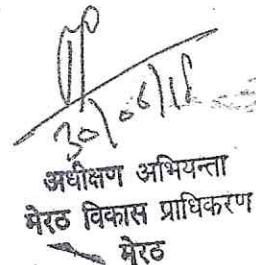 अधीक्षण अभियन्ता
मेरठ विकास प्राधिकरण
मेरठ